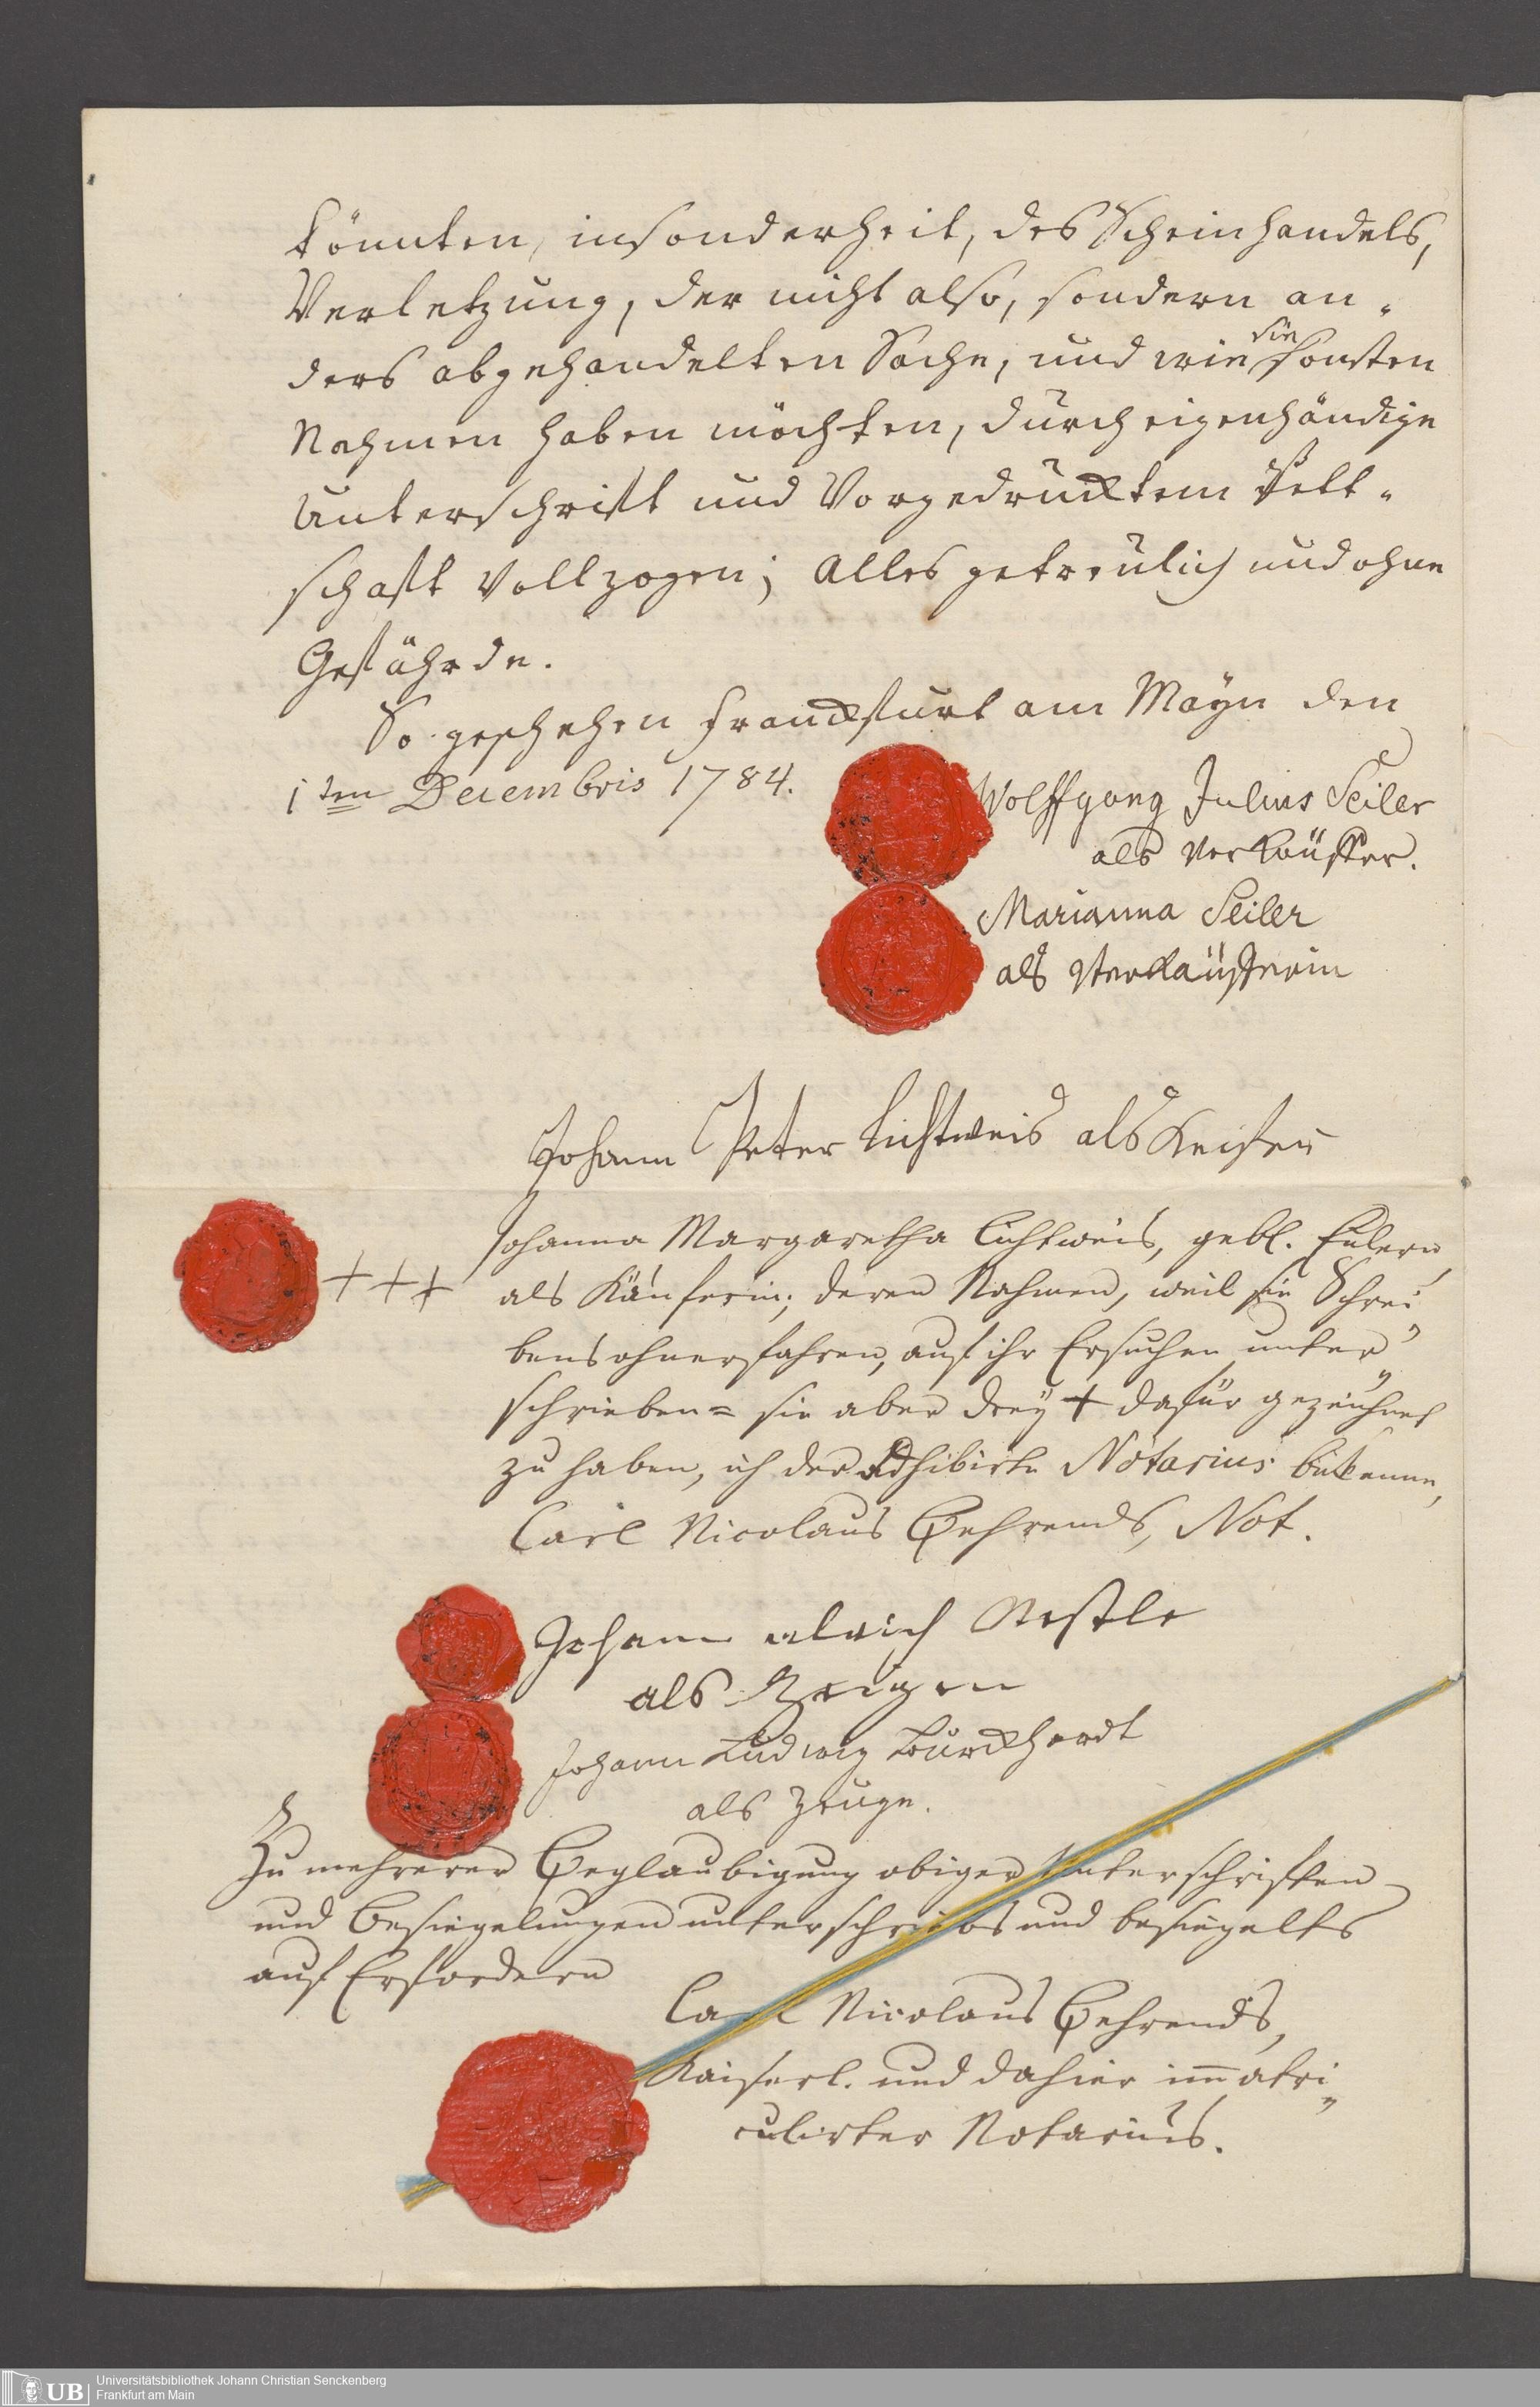 könnten, insonderheit, des Scheinhandels,
Verletzung, der nicht also, sondern an-
ders abgehandelten Sache, und wie sie sonsten
Nahmen haben möchten, durch eigenhändige
Unterschrifft und Vorgedrucktem Pett-
schafft Vollzogen; Alles getreulich und ohne
Gefährde.
So geschehen Franckfurt am Mayn den
1ten Decembris 1784.
Wolffgang Julius Seiler
als Verkäuffer.
Marianna Seiler
als Verkäufferin
Johann Peter Lichtweis als
Johanna Margaretha Lichtweis, gebl. Eulern,
+++ als Käuferin; deren Nahmen, weil sie Schrei-
bens ohnerfahren, auf ihr Ersuchen unter-
schrieben = sie aber drey + dafür gezeichnet
zu haben, ich der adhibirte Notarius bekenne,
Carl Nicolaus Behrends, Not.
Johann ulrich Nestle
als Zeigen
Johann Ludwig Burckhardt
als Zeuge.
Zu mehrerer Beglaubigung obiger Unterschriften
und Besiegelungen unterschriebs und besiegelts
auf Erfordern
Carl Nicolaus Behrends,
Kaiserl. und dahier im̄atri-
culirter Notarius.
UB
Universitätsbibliothek Johann Christian Senckenberg
Frankfurt am Main